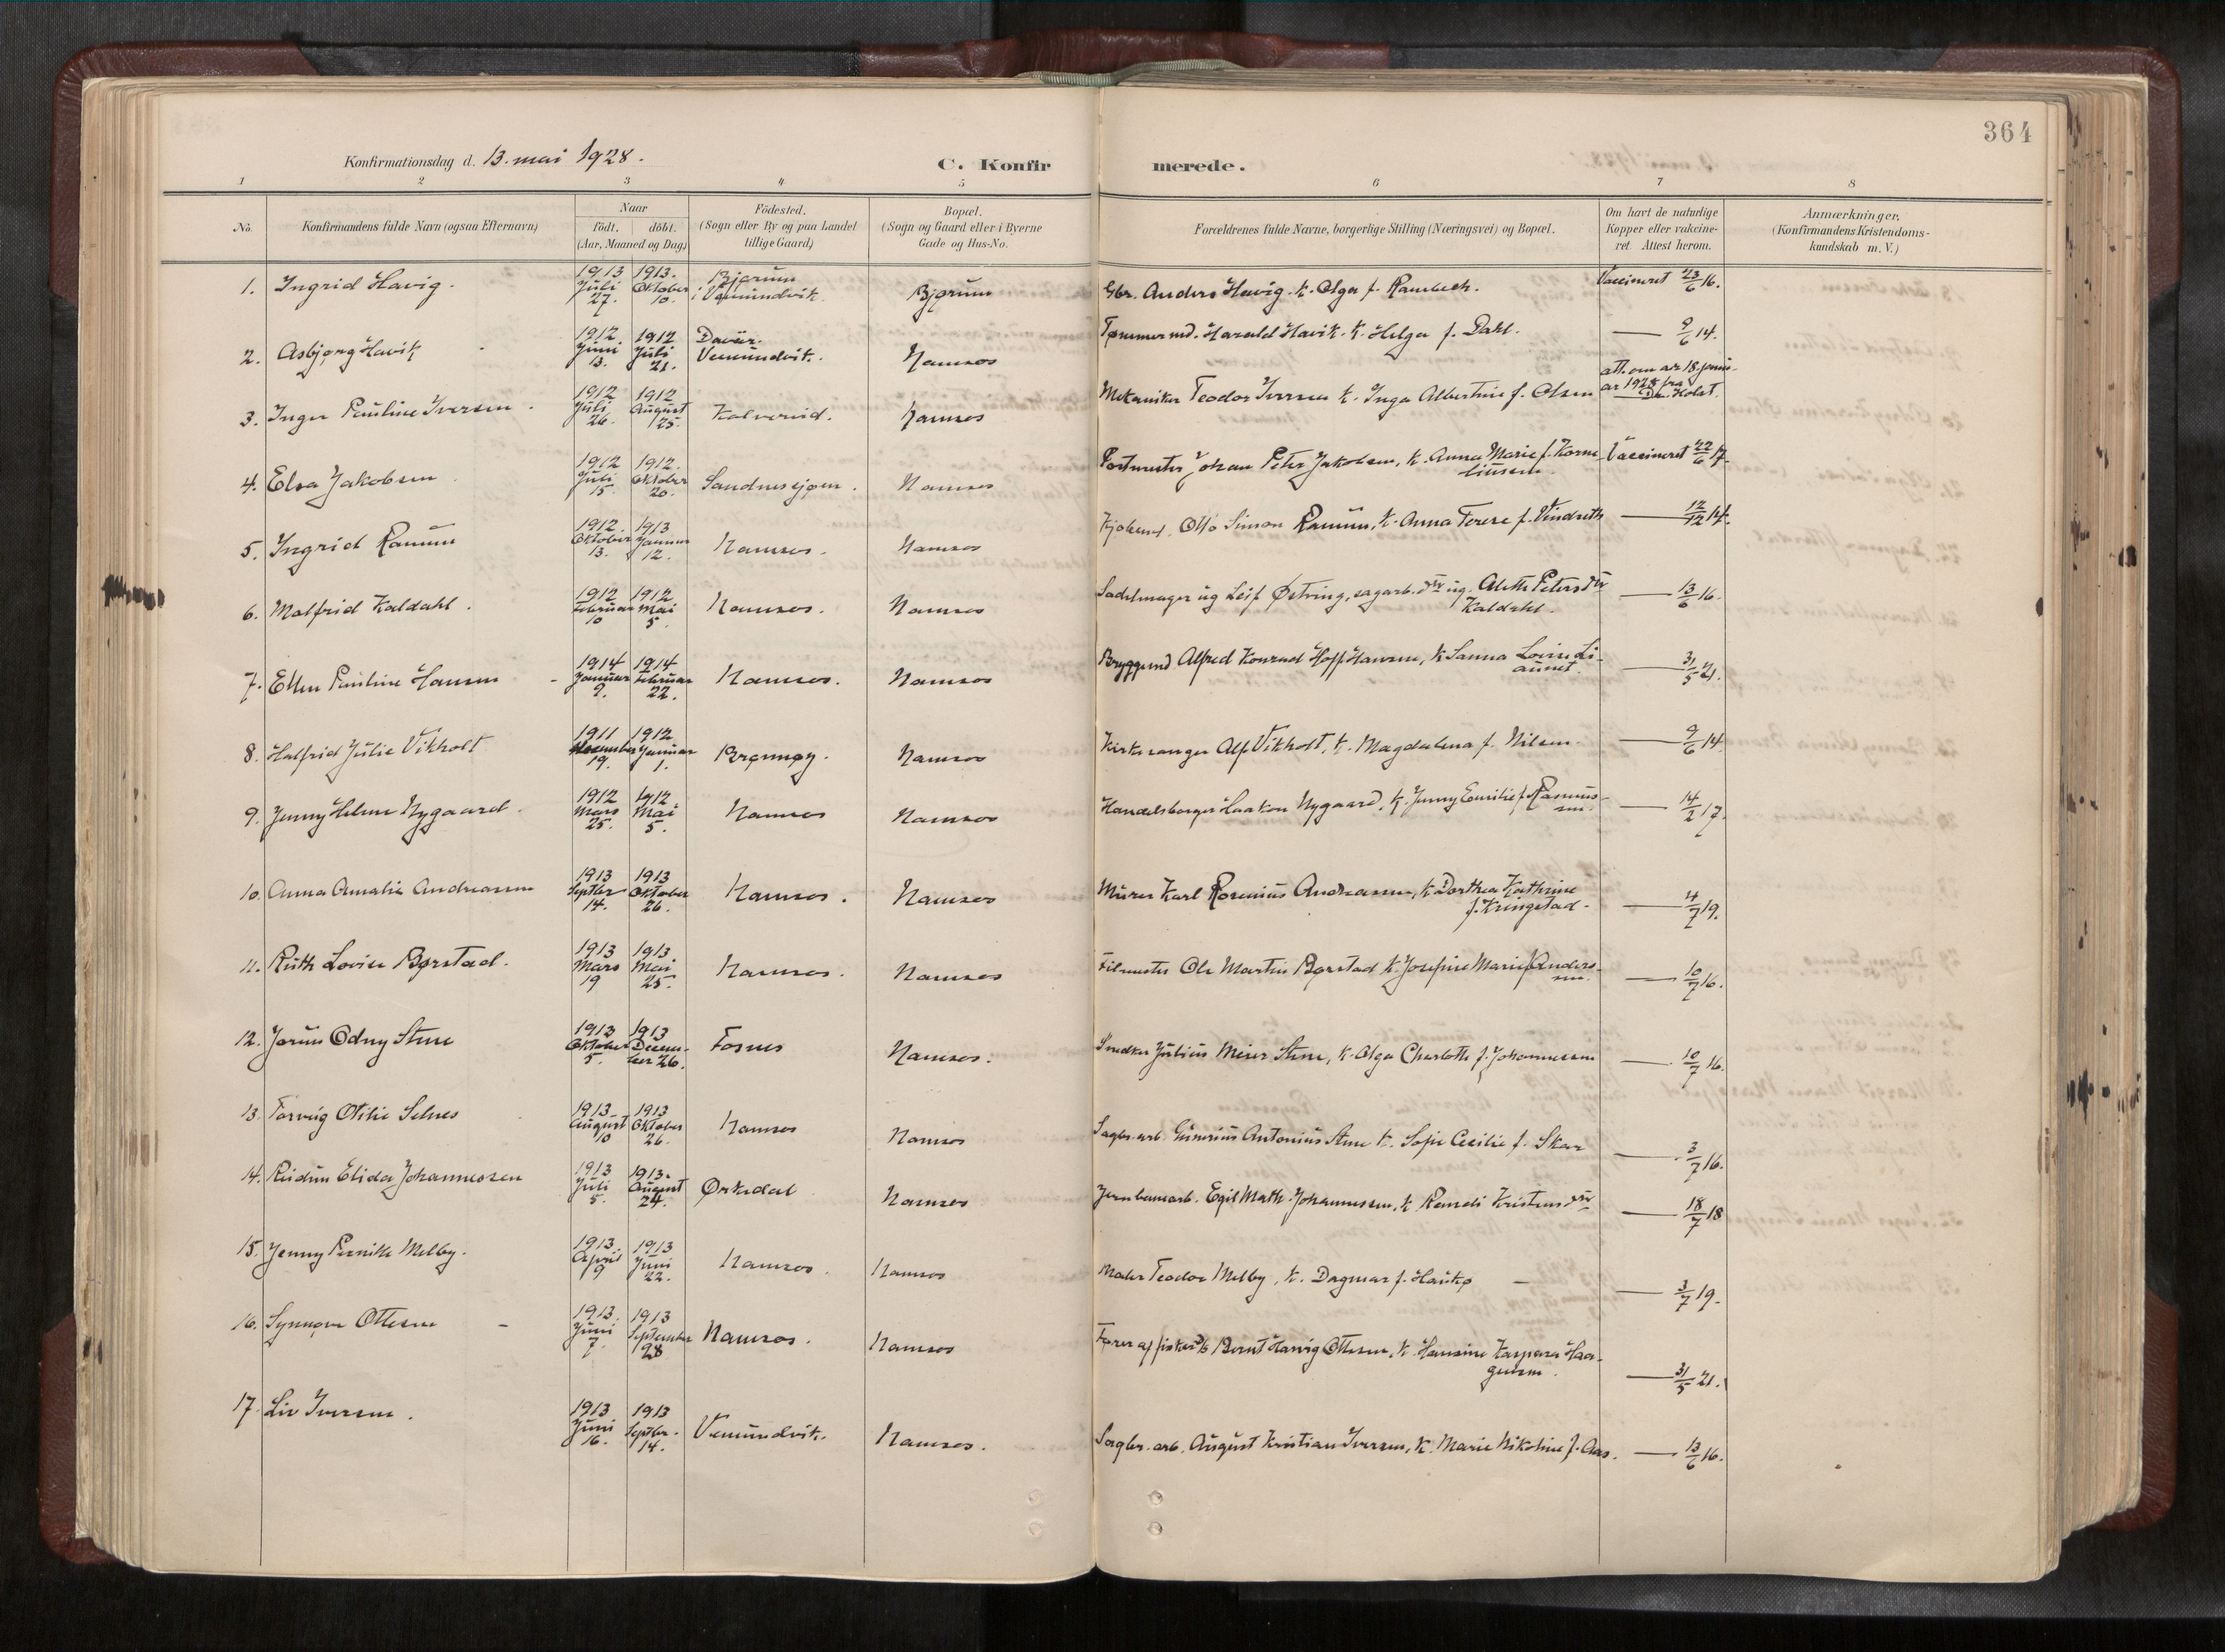 364
Konfirmationsdag d. 13. mai 1928.
C. Konfirmerede.
1 2 3 4 5 6 7 8
No. Konfirmandens fulde Navn (ogsaa Efternavn) Naar födt. döbt. (Aar, Maaned og Dag) Födested. (Sogn eller By og paa Landet tillige Gaard) Bopæl. (Sogn og Gaard eller i Byerne Gade og Hus-No. Forældrenes fulde Navne, borgerlige Stilling (Næringsvei) og Bopæl. Om havt de naturlige Kopper eller vaccineret. Attest herom. Anmærkninger. (Konfirmandens Kristendomskundskab m. V.)
1. Ingrid Havig. 1913 Juli 27. 1913. Oktober 10. Bjørum i Vemundvik. Bjørum Gbr. Anders Havig. k. Olga f. Rambech. Vaccineret 23/6 16.
2. Asbjørg Havik 1912 Juni 13. 1912 Juli 21. Vemundvik. Namsos Tømmermd. Harald Havik. k. Helga f. Dahl. — 9/6 14.
3. Inger Pauline Iversen. 1912 Juli 26. 1912 August 25. Kalvereid. Namsos Mekaniker Teodor Iversen k. Inga Albertine f. Olsen att. om av 18. januar 1928 fra Dr. Holst.
4. Elsa Jakobsen 1912 Juli 15. 1912. Oktober 20. Sandnessjøen. Namsos Postmester Johan Peter Jakobsen, k. Anna Marie f. Korneliussen Vaccineret 22/6 17.
5. Ingrid Ranum 1912. Oktober 13. 1913 Januar 12. Namsos. Namsos Kjøbmd. Otto Simon Ranum, k. Anna Terese f. Vindseth — 12/12 14.
6. Malfrid Kaldahl. 1912 Februar 10 1912 Mai 5. Namsos. Namsos Sadelmager ug Leif Østring, sagarb. dtr ug. Aleth Petersdtr Kaldahl. — 13/6 16.
7. Ellen Pauline Hansen 1914 Januar 9. 1914 Februar 22. Namsos. Namsos Bryggemd Alfred Konrad Hoff Hansen, k Sanna Lovise Liaunet. — 31/5 21.
8. Halfrid Julie Vikholt 1911 19. 1912 Januar 1. Brønnøy. Namsos Kirkesanger Alf Vikholt, k. Magdalena f. Nilsen. — 9/6 14.
9. Jenny Helene Nygaard. 1912 Mars 25. 1912 Mai 5. Namsos Namsos Handelsborger Haakon Nygaard, k. Jenny Emilie f. Rasmussen. — 14/2 17.
10. Anna Amalie Andreassen 1913 Septbr 14. 1913 Oktober 26. Namsos. Namsos Murer Karl Rosenius Andreassen, k Dorthea Kathrine f. Kringstad. — 4/7 19.
11. Ruth Lovise Børstad. 1913 Mars 19 1913 Mai 25. Namsos. Namsos Ole Martin Børstad k. Josefine Marie f. Andersen. — 10/7 16.
12. Jorun Odny Stene 1913 Oktober 5. 1913 Desember 26. Fosnes Namsos. Snedker Julius Meier Stene, k. Olga Charlotte f. Johannessen — 10/7 16.
13. Torveig Otilie Selnes 1913. August 10 1913 Oktober 26. Namsos Namsos Sagbr. arb. Antonius Stene k. Sofie Cecilie f. Skar — 3/7 16.
14. Reidun Elida Johannessen 1913 Juli 5. 1913. August 24. Orkedal Namsos Jernbanearb. Egil Math. Johannessen, k Randi Kristensdtr — 18/7 18
15. Jenny Pernille Melby. 1913. April 9 1913 Juni 22. Namsos. Namsos Maler Teodor Melby, k. Dagmar f. Haukø — 3/7 19.
16. Synnøve Ottesen 1913. Juni 7. 1913 September 28 Namsos. Namsos Fører af fisker Bernt Hartvig Ottesen, k. Hansine Kaspara Haagensen. — 31/5 21.
17. Liv Iversen. 1913 Juni 16. 1913 Septbr. 14. Vemundvik. Namsos. Sagbr. arb. August Kristian Iversen, k. Marie Nikoline f. Aas. — 13/6 16.